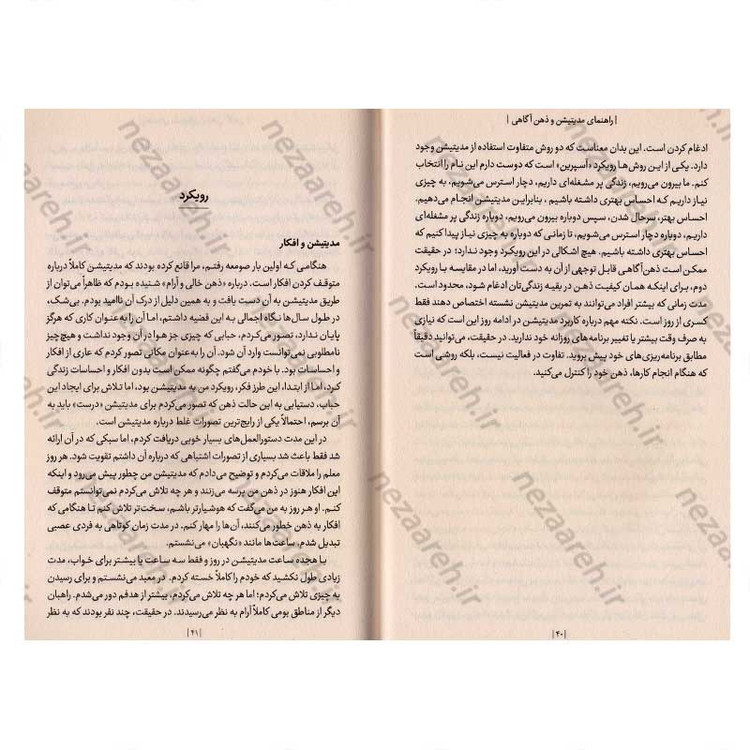 | راهنمای مدیتیشن و ذهن آگاهی |
ادغام کردن است. این بدان معناست که دو روش متفاوت استفاده از مدیتیشن وجود
دارد. یکی از این روش‌ها رویکرد «آسپرین» است که دوست دارم این نام را انتخاب
کنم. ما بیرون می‌رویم، زندگی پر مشغله‌ای داریم، دچار استرس می‌شویم، به چیزی
نیاز داریم که احساس بهتری داشته باشیم، بنابراین مدیتیشن انجام می‌دهیم.
احساس بهتر، سرحال شدن، سپس دوباره بیرون می‌رویم، دوباره زندگی پر مشغله‌ای
داریم، دوباره دچار استرس می‌شویم، تا زمانی که دوباره به چیزی نیاز پیدا کنیم که
احساس بهتری داشته باشیم. هیچ اشکالی در این رویکرد وجود ندارد؛ در حقیقت
ممکن است ذهن‌آگاهی قابل توجهی از آن به دست آورید، اما در مقایسه با رویکرد
دوم، برای اینکه همان کیفیت ذهن در بقیه زندگی‌تان ادغام شود، محدود است.
مدت زمانی که بیشتر افراد می‌توانند به تمرین مدیتیشن نشسته اختصاص دهند فقط
کسری از روز است. نکته مهم درباره کاربرد مدیتیشن در ادامه روز این است که نیازی
به صرف وقت بیشتر یا تغییر برنامه‌های روزانه خود ندارید. در حقیقت، می‌توانید دقیقاً
مطابق برنامه‌ریزی‌های خود پیش بروید. تفاوت در فعالیت نیست، بلکه روشی است
که هنگام انجام کارها، ذهن خود را کنترل می‌کنید.
| ۴۰ |
رویکرد
مدیتیشن و افکار
هنگامی که اولین بار صومعه رفتم، مرا قانع کرده بودند که مدیتیشن کاملاً درباره
متوقف کردن افکار است. درباره «ذهن خالی و آرام» شنیده بودم که ظاهراً می‌توان از
طریق مدیتیشن به آن دست یافت و به همین دلیل از درک آن ناامید بودم. بی‌شک،
در طول سال‌ها نگاه اجمالی به این قضیه داشتم، اما آن را به‌عنوان کاری که هرگز
پایان ندارد، تصور می‌کردم، حبابی که چیزی جز هوا در آن وجود نداشت و هیچ‌چیز
نامطلوبی نمی‌توانست وارد آن شود. آن را به‌عنوان مکانی تصور کردم که عاری از افکار
و احساسات بود. با خودم می‌گفتم چگونه ممکن است بدون افکار و احساسات زندگی
کرد، اما از ابتدا، این طرز فکر، رویکرد من به مدیتیشن بود. اما تلاش برای ایجاد این
حباب، دستیابی به این حالت ذهن که تصور می‌کردم برای مدیتیشن «درست» باید به
آن برسم، احتمالاً یکی از رایج‌ترین تصورات غلط درباره مدیتیشن است.
در این مدت دستورالعمل‌های بسیار خوبی دریافت کردم، اما سبکی که در آن ارائه
شد فقط باعث شد بسیاری از تصورات اشتباهی که درباره آن داشتم تقویت شود. هر روز
معلم را ملاقات می‌کردم و توضیح می‌دادم که مدیتیشن من چطور پیش می‌رود و اینکه
این افکار هنوز در ذهن من پرسه می‌زنند و هر چه تلاش می‌کردم نمی‌توانستم متوقف
کنم. او هر روز به من می‌گفت که هوشیارتر باشم، سخت‌تر تلاش کنم تا هنگامی که
افکار به ذهن خطور می‌کنند، آن‌ها را مهار کنم. در مدت زمان کوتاهی به فردی عصبی
تبدیل شدم. ساعت‌ها مانند «نگهبان» می‌نشستم.
با هجده ساعت مدیتیشن در روز و فقط سه ساعت یا بیشتر برای خواب، مدت
زیادی طول نکشید که خودم را کاملاً خسته کردم. در معبد می‌نشستم و برای رسیدن
به چیزی تلاش می‌کردم؛ اما هر چه تلاش می‌کردم، بیشتر از هدفم دور می‌شدم. راهبان
دیگر از مناطق بومی کاملاً آرام به نظر می‌رسیدند. در حقیقت، چند نفر بودند که به نظر
| ۴۱ |
nezaareh.ir
nezaareh.ir
nezaareh.ir
nezaareh.ir
nezaareh.ir
nezaareh.ir
nezaareh.ir